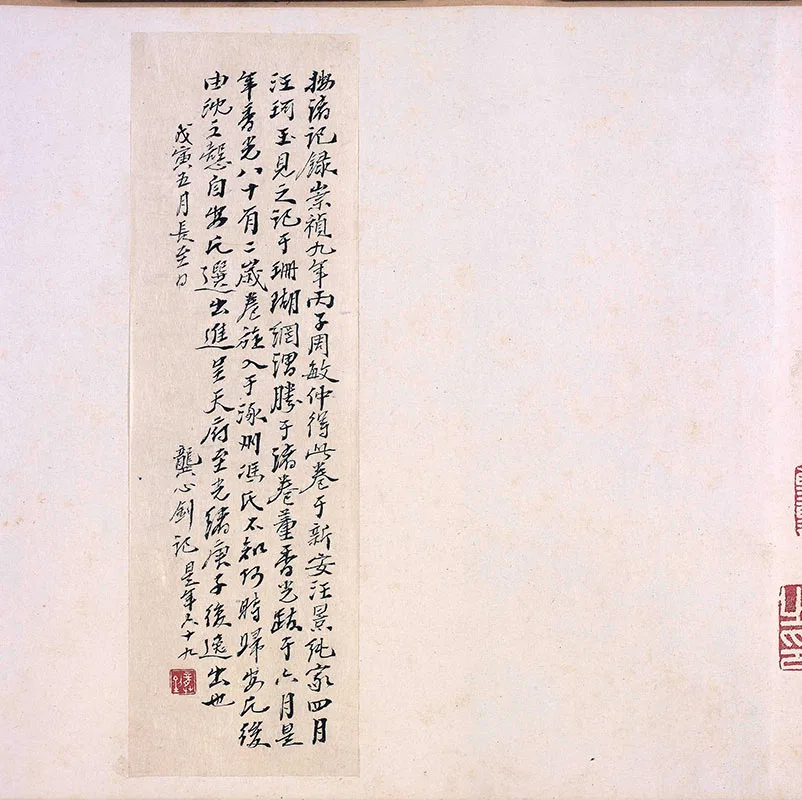 按諸記錄崇禎九年丙子周敏仲得此卷于新安汪景純家四月
汪珂玉見之記于珊瑚網謂勝于諸卷董香光跋于六月是
年香光八十有二歲卷旋入于涿州馮氏不知何時歸安氏後
由沈文愨自安氏選出進呈天府至光緒庚子後逸出也
戊寅五月長至日
龔心釗記是年六十九